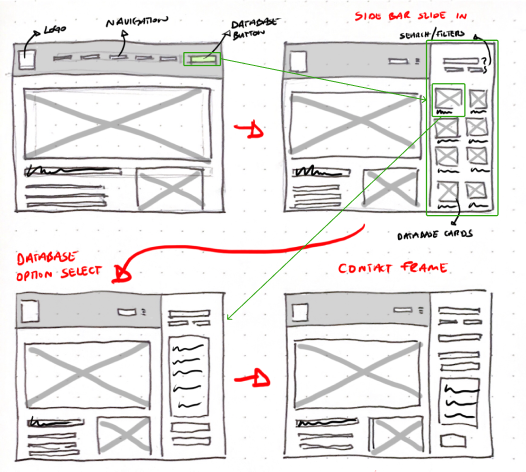 LOGO
NAVIGATION
DATABASE
BUTTON
SIDE BAR SLIDE IN
SEARCH/FILTERS
?
DATABASE CARDS
DATABASE
OPTION SELECT
CONTACT FRAME